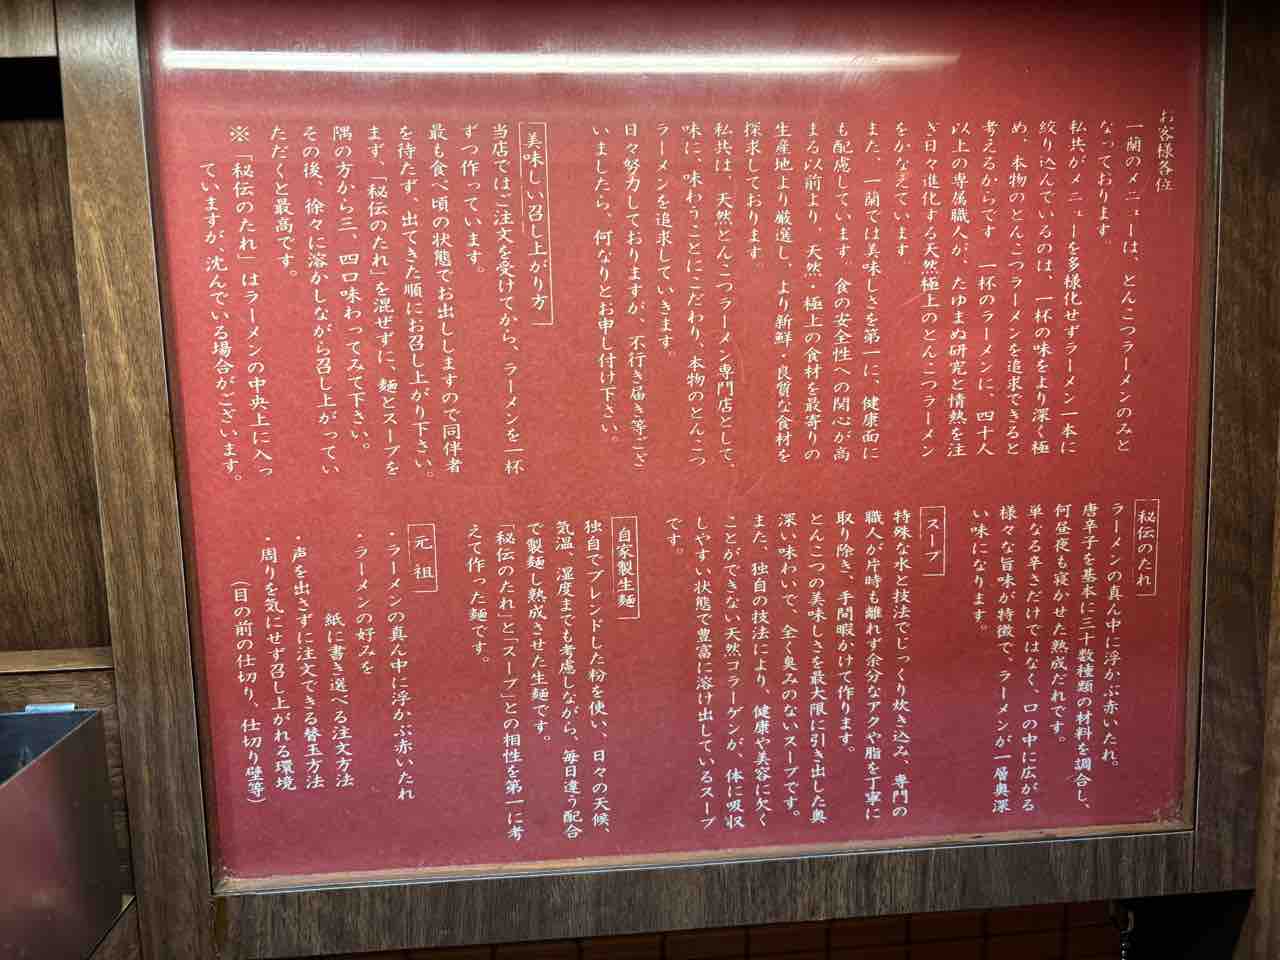 お客様各位
一蘭のメニューは、とんこつラーメンのみと
なっております。
私共がメニューを多様化せずラーメン一本に
絞り込んでいるのは、一杯の味をより深く極
め、本物のとんこつラーメンを追求できると
考えるからです 一杯のラーメンに、四十人
以上の専属職人が、たゆまぬ研究と情熱を注
ぎ日々進化する天然極上のとんこつラーメン
をかなえています
また、一蘭では美味しさを第一に、健康面に
も配慮しています。食の安全性への関心が高
まる以前より、天然・極上の食材を最寄りの
生産地より厳選し、より新鮮・良質な食材を
探求しております。
私共は、天然とんこつラーメン専門店として、
味に、味わうことにこだわり、本物のとんこつ
ラーメンを追求していきます。
日々努力しておりますが、不行き届き等ござ
いましたら、何なりとお申し付け下さい。
美味しい召し上がり方
当店ではご注文を受けてから、ラーメンを一杯
ずつ作っています。
最も食べ頃の状態でお出ししますので同伴者
を待たず、出てきた順にお召し上がり下さい。
まず、「秘伝のたれ」を混ぜずに、麺とスープを
隅の方から三、四口味わってみて下さい。
その後、徐々に溶かしながら召し上がってい
ただくと最高です。
※「秘伝のたれ」はラーメンの中央上に入っ
ていますが、沈んでいる場合がございます。
秘伝のたれ
ラーメンの真ん中に浮かぶ赤いたれ。
唐辛子を基本に三十数種類の材料を調合し、
何昼夜も寝かせた熟成だれです。
単なる辛さだけではなく、口の中に広がる
様々な旨味が特徴で、ラーメンが一層奥深
い味になります。
スープ
特殊な水と技法でじっくり炊き込み、専門の
職人が片時も離れず余分なアクや脂を丁寧に
取り除き、手間暇かけて作ります。
とんこつの美味しさを最大限に引き出した奥
深い味わいで、全く臭みのないスープです。
また、独自の技法により、健康や美容に欠く
ことができない天然コラーゲンが、体に吸収
しやすい状態で豊富に溶け出しているスープ
です。
自家製生麺
独自でブレンドした粉を使い、日々の天候、
気温、湿度までも考慮しながら、毎日違う配合
で製麺し熟成させた生麺です。
「秘伝のたれ」と「スープ」との相性を第一に考
えて作った麺です。
元祖
・ラーメンの真ん中に浮かぶ赤いたれ
・ラーメンの好みを
紙に書き選べる注文方法
・声を出さずに注文できる替玉方法
・周りを気にせず召し上がれる環境
(目の前の仕切り、仕切り壁等)